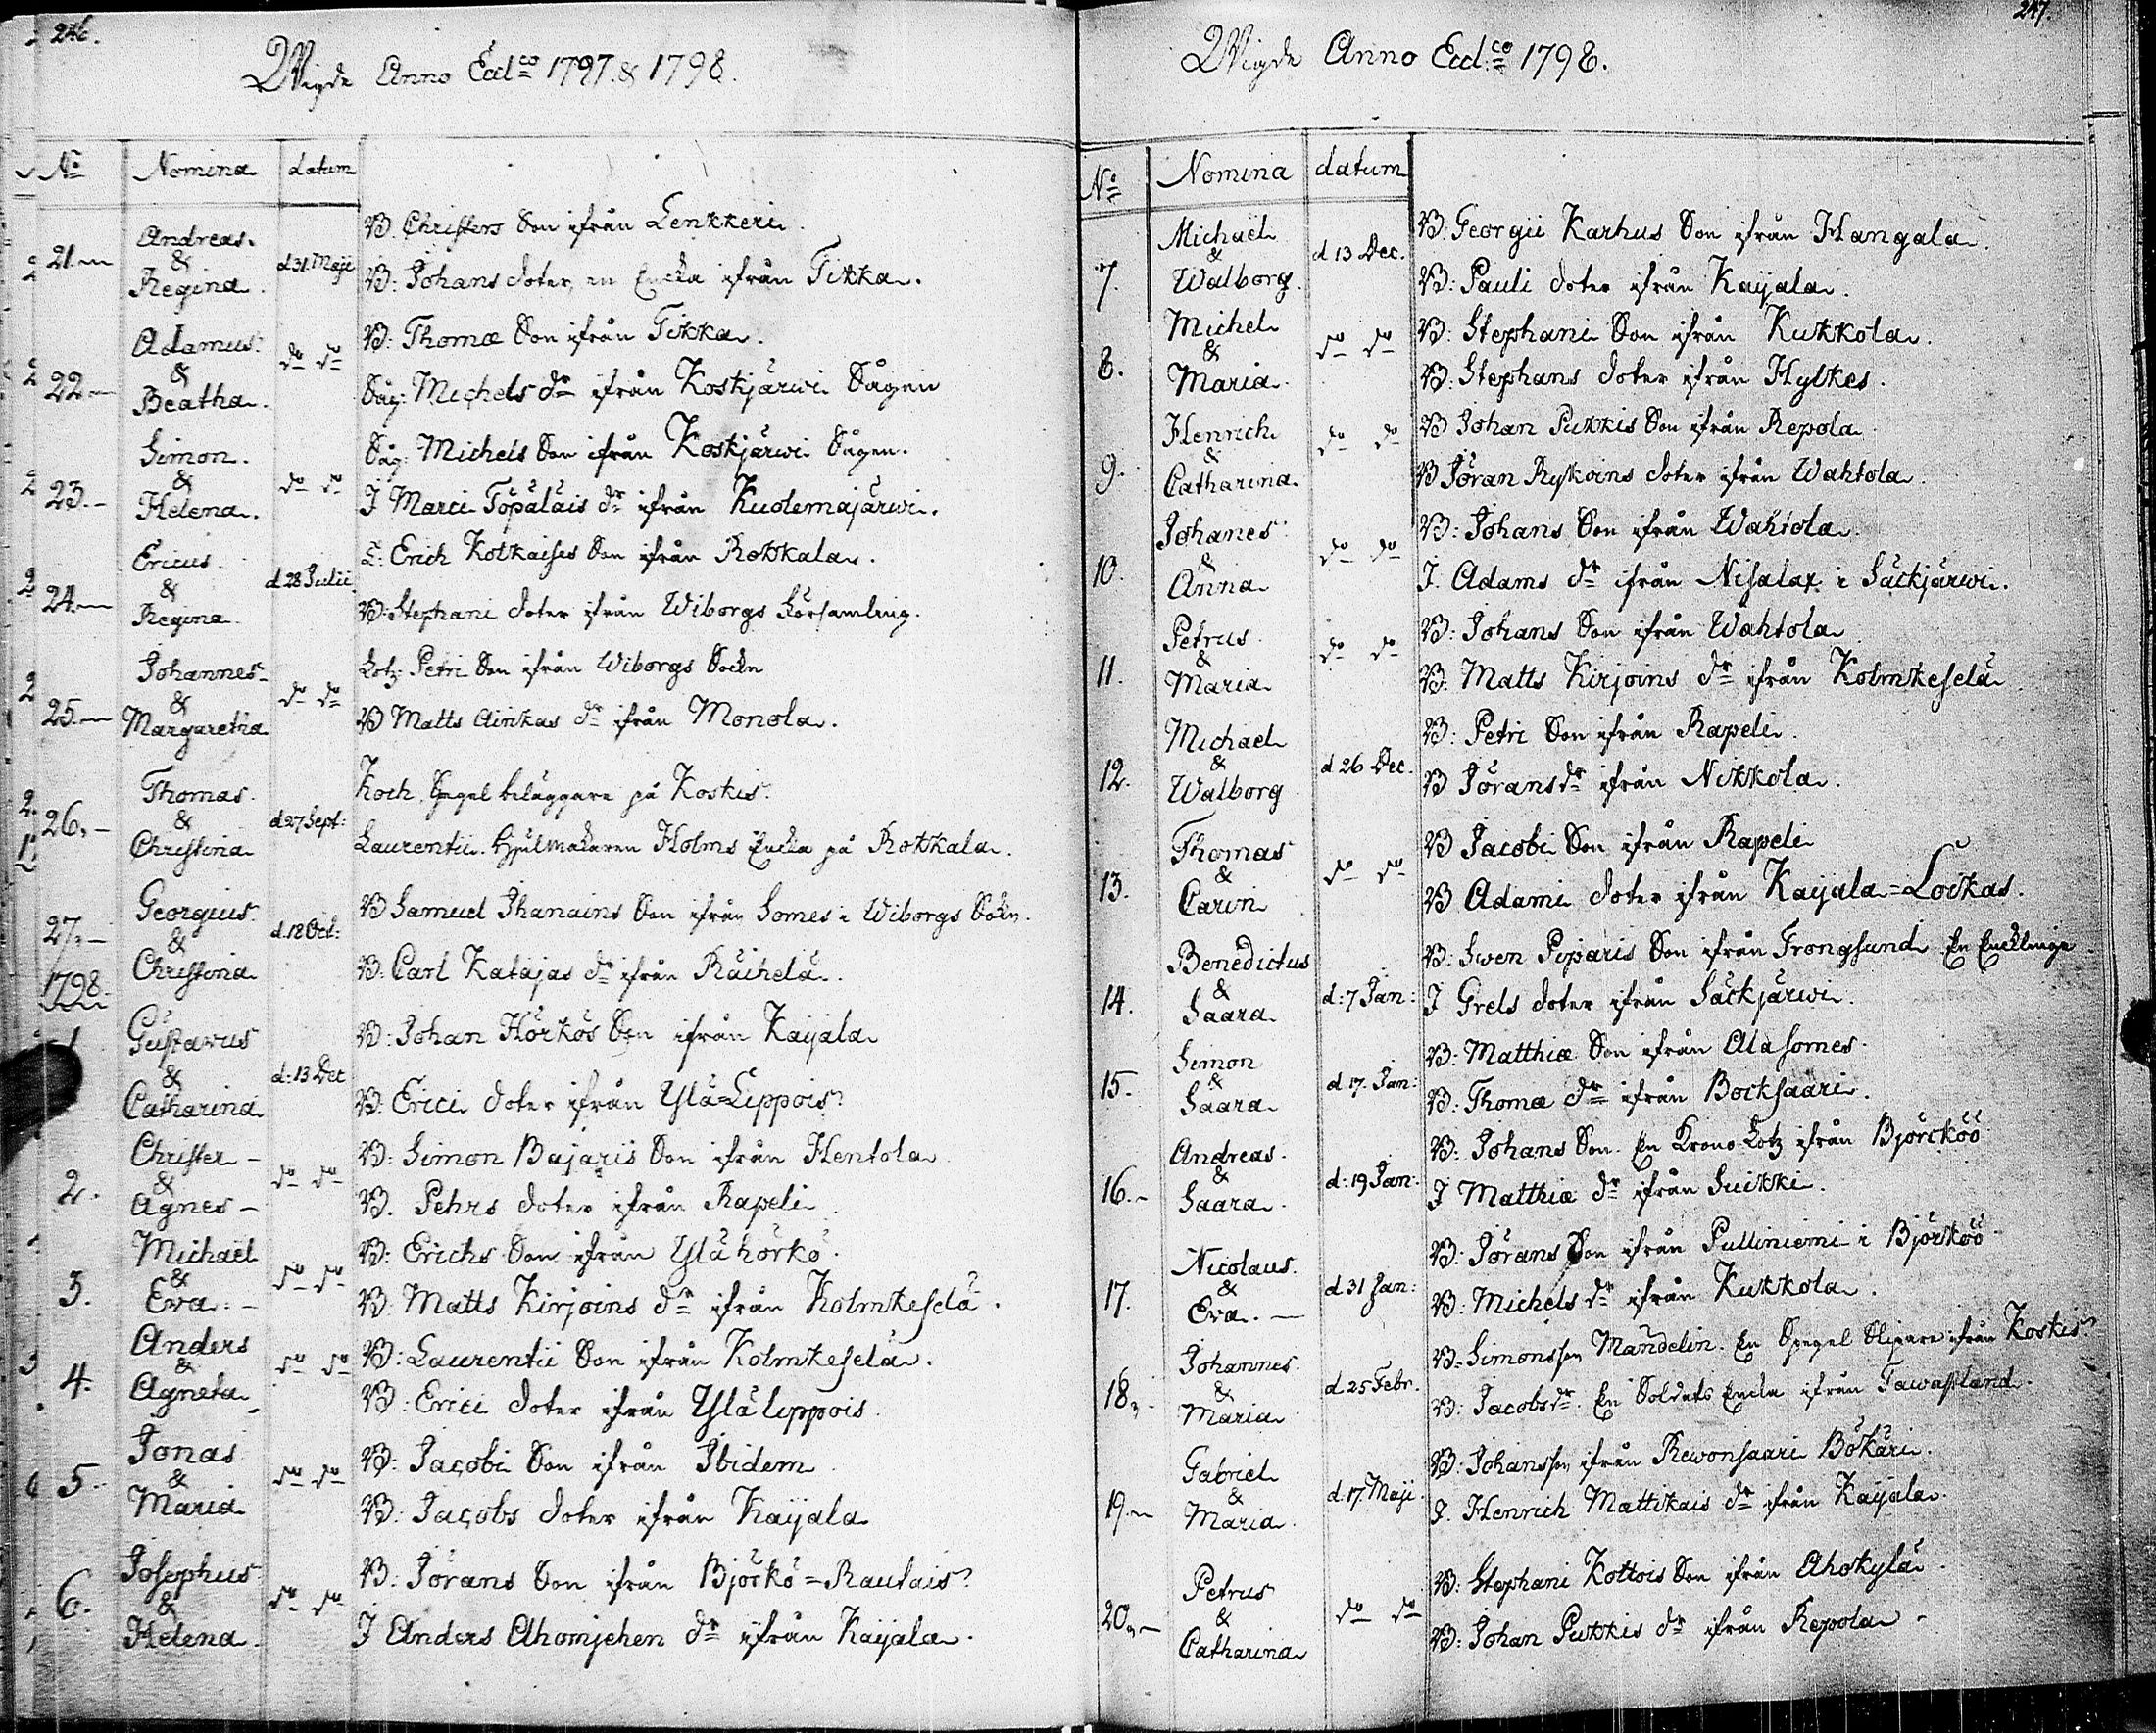 246.
Wigde Anno Eccl:co 1797. & 1798.
No Nomina datum
21. Andreas & Regina. d 31. Maji
B. Christers Son ifrån Lenkkeri.
B: Johans doter, en Encka ifrån Tikka.
22. Adamus & Beatha. do do
B: Thomæ Son ifrån Tikka.
Såg: Michels dr ifrån Koskjärwi Sågen
23. Simon. & Helena. do do
Såg: Michels Son ifrån Koskjärwi Sågen.
J Marci Töpäläis dr ifrån Kuolemajärwi.
24. Ericus. & Regina. d 28 Julii.
Erich Kotkaises Son ifrån Rokkala.
B: Stephani doter ifrån Wiborgs Församling.
25. Johannes & Margaretha do do
Lotz: Petri Son ifrån Wiborgs Sockn
B Matts Ainkas dr ifrån Monola.
26. Thomas. & Christina d 27 Sept:
Koch. Spegel beläggare på Koskis.
Laurentii. Hjulmakaren Holms Encka på Rokkala.
27. Georgius. & Christina d. 18 Oct:
B Samuel Ihanains Son ifrån Somes i Wiborgs Sokn.
B: Carl Katajas dr ifrån Räihelä.
1798.
1 Gustavus & Catharina d: 13 Dec
B: Johan Hörkös Son ifrån Kaijala
B: Erici doter ifrån Ylä=Lippois
2. Christer & Agnes do do
B: Simon Bajaris Son ifrån Hentola
B. Pehrs doter ifrån Rapeli
3. Michaël & Eva. do do
B: Erichs Son ifrån Ylähörkö.
B: Matts Kirjoins dr ifrån Kolmkeselä.
4. Anders & Agneta do do
B: Laurentii Son ifrån Kolmkeselä.
B: Erici doter ifrån Ylälippois.
5. Jonas & Maria do do
B: Jacobi Son ifrån Ibidem
B: Jacobs doter ifrån Kaijala
6. Josephus & Helena. do do
B: Jörans Son ifrån Björkö=Rautais
J Anders Ahomjehen dr ifrån Kaijala.
247.
Wigde Anno Eccl:co 1798.
No Nomina datum
7. Michaël & Walborg. d 13 Dec.
B. Georgii Karhus Son ifrån Hangala.
B: Pauli doter ifrån Kaijala.
8. Michel & Maria. do do
B: Stephani Son ifrån Kukkola.
B: Stephans doter ifrån Hylkes.
9. Henrich & Catharina. do do
B Johan Pukkis Son ifrån Repola
B Jöran Ryköins doter ifrån Wahtola
10. Johanes & Anna do do
B: Johans Son ifrån Wahtola
J. Adams dr ifrån Nisalax i Säckjärwi.
11. Petrus & Maria do do
B: Johans Son ifrån Wahtola
B. Matts Kirjoins dr ifrån Kolmkeselä
12. Michael & Walborg d 26 Dec.
B: Petri Son ifrån Rapeli.
B Jörans dr ifrån Nikkola.
13. Thomas & Carin do do
B Jacobi Son ifrån Rapeli
B Adami doter ifrån Kaijala=Lockas.
14. Benedictus & Saara d: 7 Jan:
B: Swen Piparis Son ifrån Trongsund En Enckling
J Grels doter ifrån Säckjärwi.
15. Simon & Saara d 17. Jan:
B: Matthiæ Son ifrån Alasomes.
B: Thomæ dr ifrån Bocksaari.
16. Andreas. & Saara. d: 19 Jan:
B: Johans Son. En Krono Lotz ifrån Björcköö
J Matthiæ dr ifrån Suikki.
17. Nicolaus. & Eva. d 31 Jan:
B: Jörans Son ifrån Pulliniemi i Björköö
B: Michels dr ifrån Kukkola.
18. Johannes. & Maria d 25 Febr.
B: Simonsson Mandelin. En Spegel Slipare ifrån Koskis
B: Jacobs dr. En Soldats Encka ifrån Tawastland.
19. Gabriel & Maria. d. 17. Maji.
B: Johansson ifrån Rewonsaari Bökäri.
J. Henrich Mattikais dr ifrån Kaijala.
20. Petrus & Catharina do do
B: Stephani Kottois Son ifrån Ahokylä.
B: Johan Pukkis dr ifrån Repola